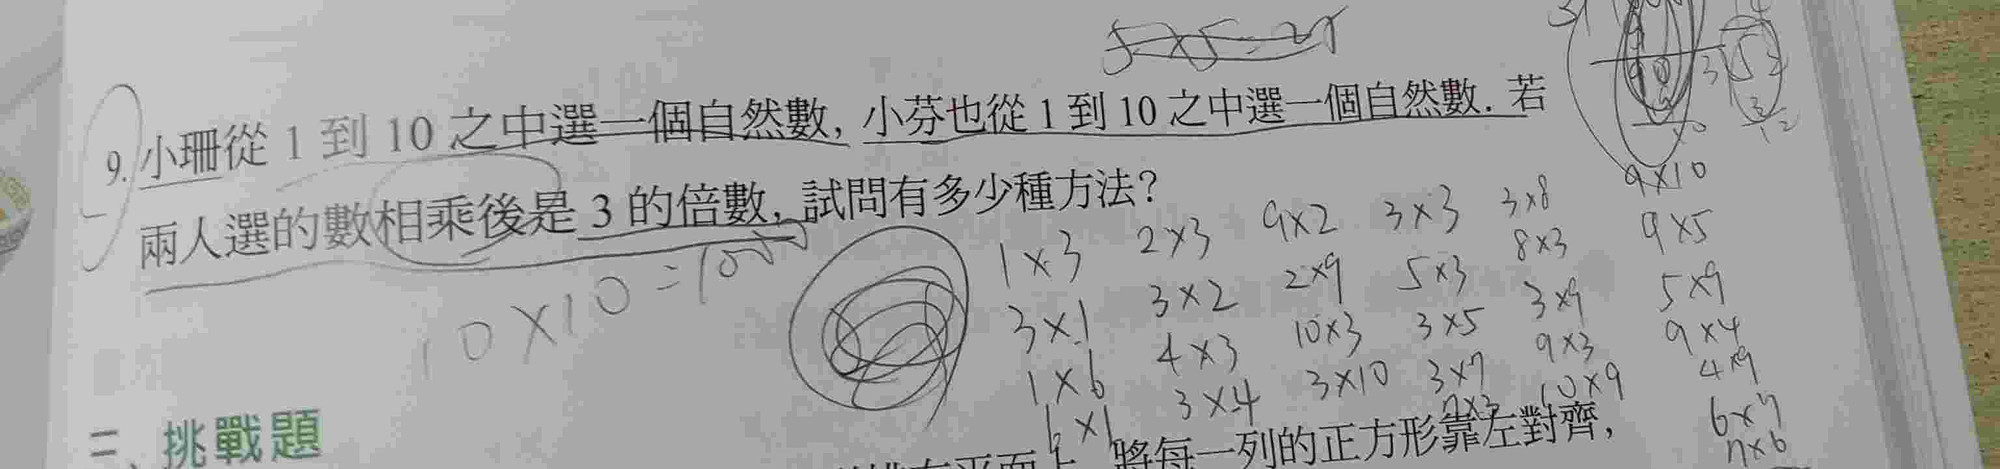 5×5=25
9. 小珊從 1 到 10 之中選一個自然數, 小芬也從 1 到 10 之中選一個自然數. 若
兩人選的數相乘後是 3 的倍數, 試問有多少種方法?
10×10=100
1×3 2×3 9×2 3×3 3×8 9×10
3×1 3×2 2×9 5×3 8×3 9×5
1×6 4×3 10×3 3×5 3×9 5×9
6×1 3×4 3×10 3×7 9×3 9×4
7×3 10×9 4×9
6×7
7×6
二、挑戰題
將每一列的正方形靠左對齊,